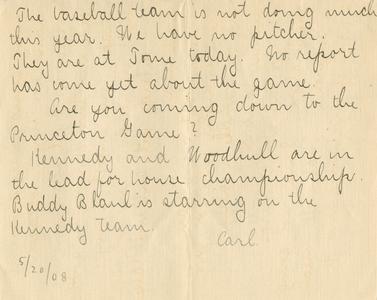 The baseball team is not doing much
this year. We have no pitcher.
They are at Tome today. No report
has come yet about the game.
Are you coming down to the
Princeton Game?
Kennedy and Woodhull are in
the lead for house championship.
Buddy is starring on the
Kennedy team.
Carl
5/20/08